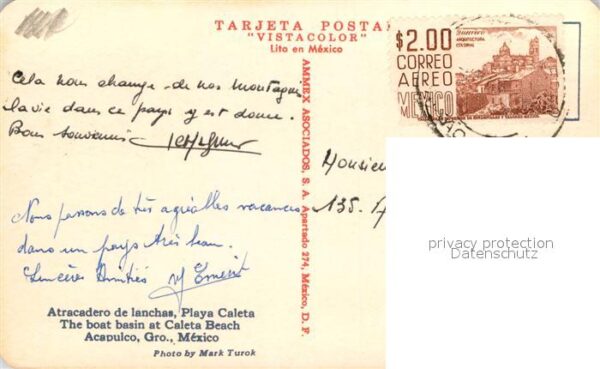 TARJETA POSTA
"VISTACOLOR"
Lito en México
$2.00
CORREO
AEREO
MEXICO
Guerrero
ARQUITECTURA
COLONIAL
Cela nous change de nos montagnes
la vie dans ce pays y est douce.
Bons souvenirs
AMMEX ASOCIADOS, S. A. Apartado 274, México, D. F.
Monsieur
135.
Nous passons de très agréables vacances
dans un pays très beau.
Sincères Amitiés
privacy protection
Datenschutz
Atracadero de lanchas, Playa Caleta
The boat basin at Caleta Beach
Acapulco, Gro., México
Photo by Mark Turok